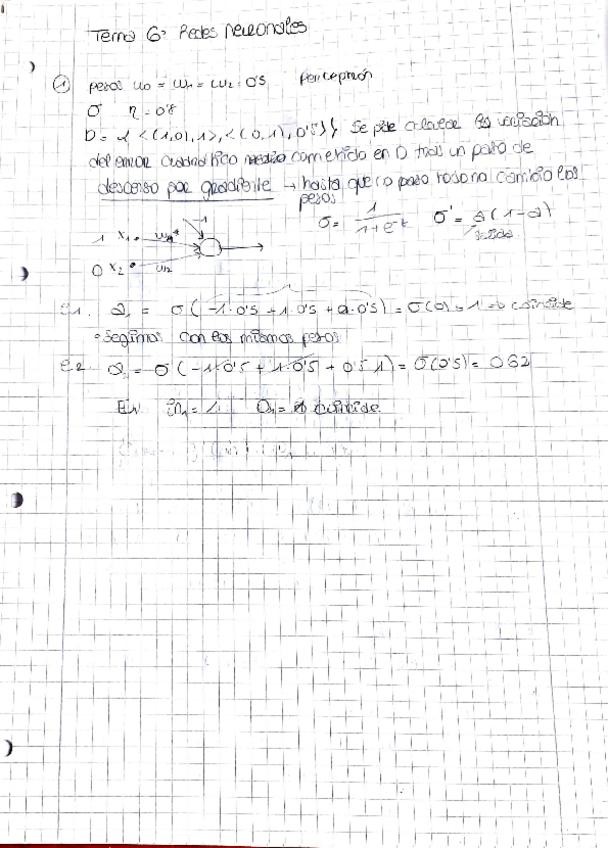 Tema 6: Redes neuronales
① pesos w0 = w1 = w2 = 0'5 perceptrón
σ η = 0'8
D = { <(1,0),1>, <(0,1),0'5>} Se pide calcular la variación
del error cuadrático medio cometido en D tras un paso de
descenso por gradiente → hasta que o paso toso no cambio los
pesos
σ = 1 / 1+e^-t σ' = a(1-a)
salida
-1
1 x1 w1
0 x2 w2
e1. a = σ(-1·0'5 + 1·0'5 + 0·0'5) = σ(0) = 1 → coincide
• Seguimos con los mismos pesos
e2. a = σ(-1·0'5 + 1·0'5 + 0'5·1) = σ(0'5) = 0'62
in1 = 1 coincide